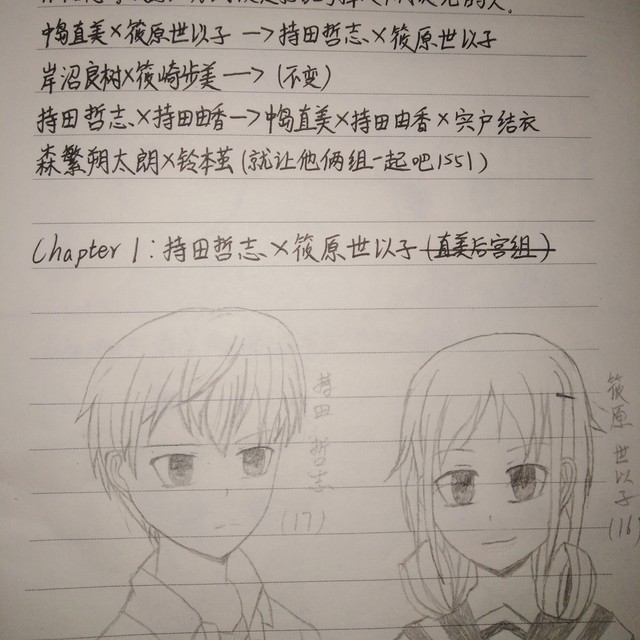 中岛直美×筱原世以子→持田哲志×筱原世以子
岸沼良树×筱崎步美→(不变)
持田哲志×持田由香→中岛直美×持田由香×宍户结衣
森繁朔太朗×铃本茧(就让他俩组一起吧1551)
Chapter 1:持田哲志×筱原世以子(直美后宫组)
持田哲志
(17)
筱原世以子
(16)